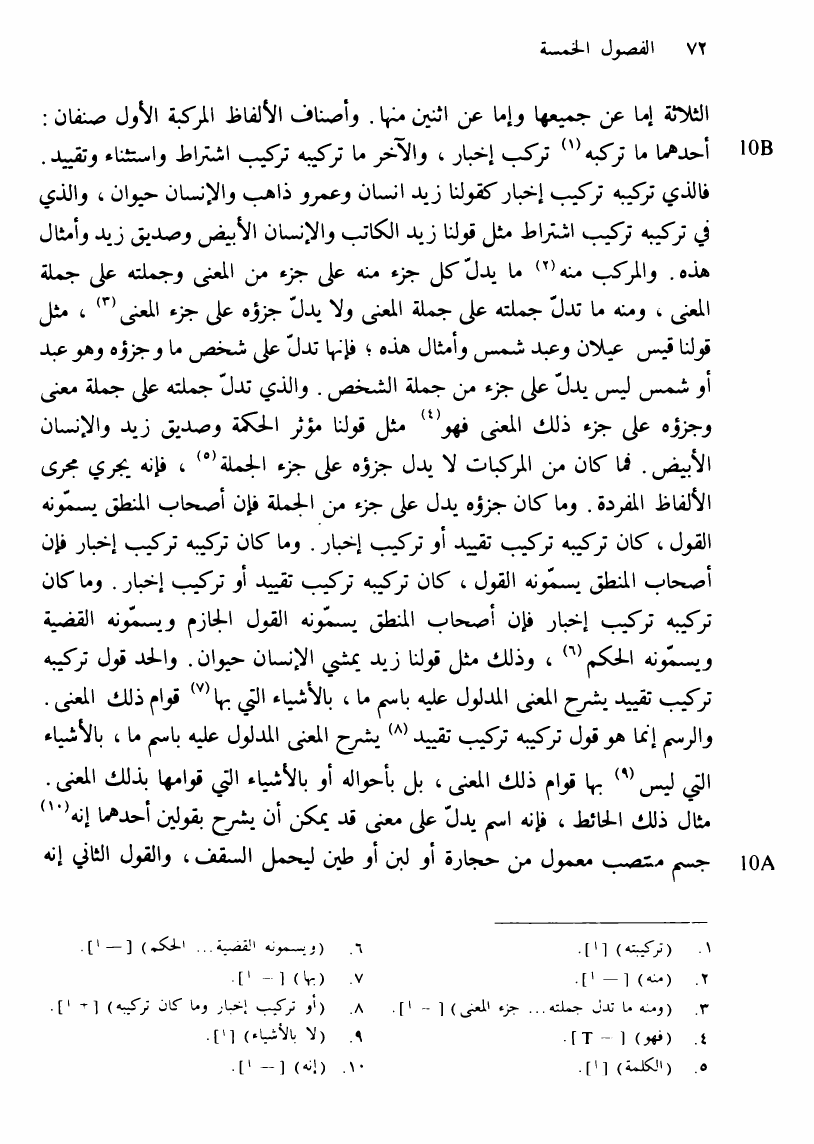 ٧٢ الفصول الخمسة
الثلاثة إما عن جميعها وإما عن اثنين منها. وأصناف الألفاظ المركبة الأول صنفان:
أحدهما ما تركبه (١) تركب إخبار، والآخر ما تركيبه تركيب اشتراط واستثناء وتقييد. 10B
فالذي تركيبه تركيب إخبار كقولنا زيد انسان وعمرو ذاهب والإنسان حيوان، والذي
في تركيبه تركيب اشتراط مثل قولنا زيد الكاتب والإنسان الأبيض وصديق زيد وأمثال
هذه. والمركب منه (٢) ما يدلّ كل جزء منه على جزء من المعنى وجملته على جملة
المعنى، ومنه ما تدلّ جملته على جملة المعنى ولا يدلّ جزؤه على جزء المعنى (٣)، مثل
قولنا قيس عيلان وعبد شمس وأمثال هذه؛ فإنها تدلّ على شخص ما وجزؤه وهو عبد
أو شمس ليس يدلّ على جزء من جملة الشخص. والذي تدلّ جملته على جملة معنى
وجزؤه على جزء ذلك المعنى فهو (٤) مثل قولنا مؤثر الحكمة وصديق زيد والإنسان
الأبيض. فما كان من المركبات لا يدل جزؤه على جزء الجملة (٥)، فإنه يجري مجرى
الألفاظ المفردة. وما كان جزؤه يدل على جزء من الجملة فإن أصحاب المنطق يسمّونه
القول، كان تركيبه تركيب تقييد أو تركيب إخبار. وما كان تركيبه تركيب إخبار فإن
أصحاب المنطق يسمّونه القول، كان تركيبه تركيب تقييد أو تركيب إخبار. وما كان
تركيبه تركيب إخبار فإن أصحاب المنطق يسمّونه القول الجازم ويسمّونه القضية
ويسمّونه الحكم (٦)، وذلك مثل قولنا زيد يمشي الإنسان حيوان. والحد قول تركيبه
تركيب تقييد يشرح المعنى المدلول عليه باسم ما، بالأشياء التي بها (٧) قوام ذلك المعنى.
والرسم إنما هو قول تركيبه تركيب تقييد (٨) يشرح المعنى المدلول عليه باسم ما، بالأشياء
التي ليس (٩) بها قوام ذلك المعنى، بل بأحواله أو بالأشياء التي قوامها بذلك المعنى.
مثال ذلك الحائط، فإنه اسم يدلّ على معنى قد يمكن أن يشرح بقولين أحدهما إنه (١٠)
جسم منتصب معمول من حجارة أو لبن أو طين ليحمل السقف، والقول الثاني إنه 10A
١. (تركيبته) [١].
٢. (منه) [— ١].
٣. (ومنه ما تدل جملته... جزء المعنى) [- ١].
٤. (فهو) [- T].
٥. (الكلمة) [١].
٦. (ويسمونه القضية... الحكم) [— ١].
٧. (بها) [- ١].
٨. (أو تركيب إخبار وما كان تركيبه) [+ ١].
٩. (لا بالأشياء) [١].
١٠. (إنه) [- ١].